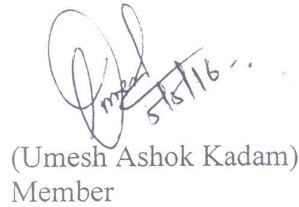 Umesh
5/5/16
(Umesh Ashok Kadam)
Member